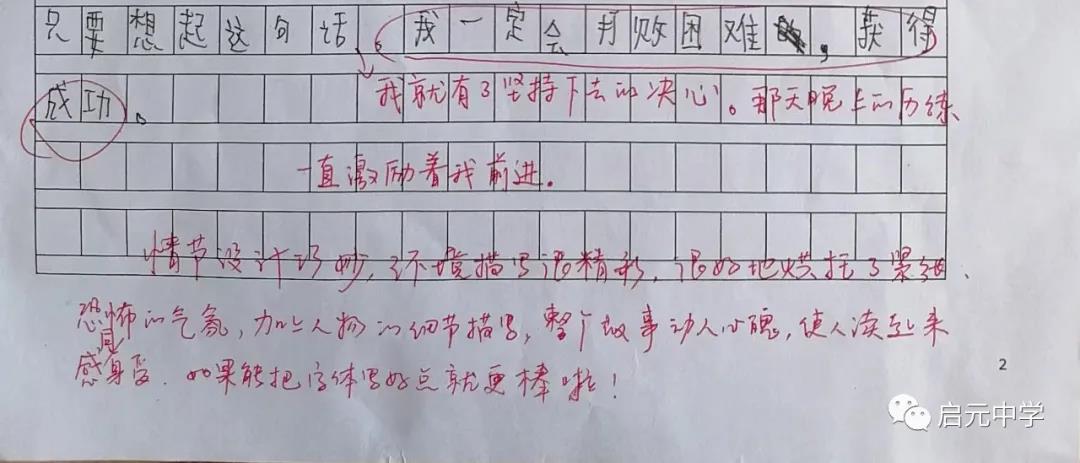 只要想起这句话，我一定会打败困难，获得
成功。
我就有了坚持下去的决心。那天晚上的历练
一直激励着我前进。
情节设计巧妙，环境描写很精彩，很好地烘托了紧张、
恐怖的气氛，加上人物的细节描写，整个故事动人心魄，使人读起来
感同身受。如果能把字体写好点就更棒啦！
2
启元中学